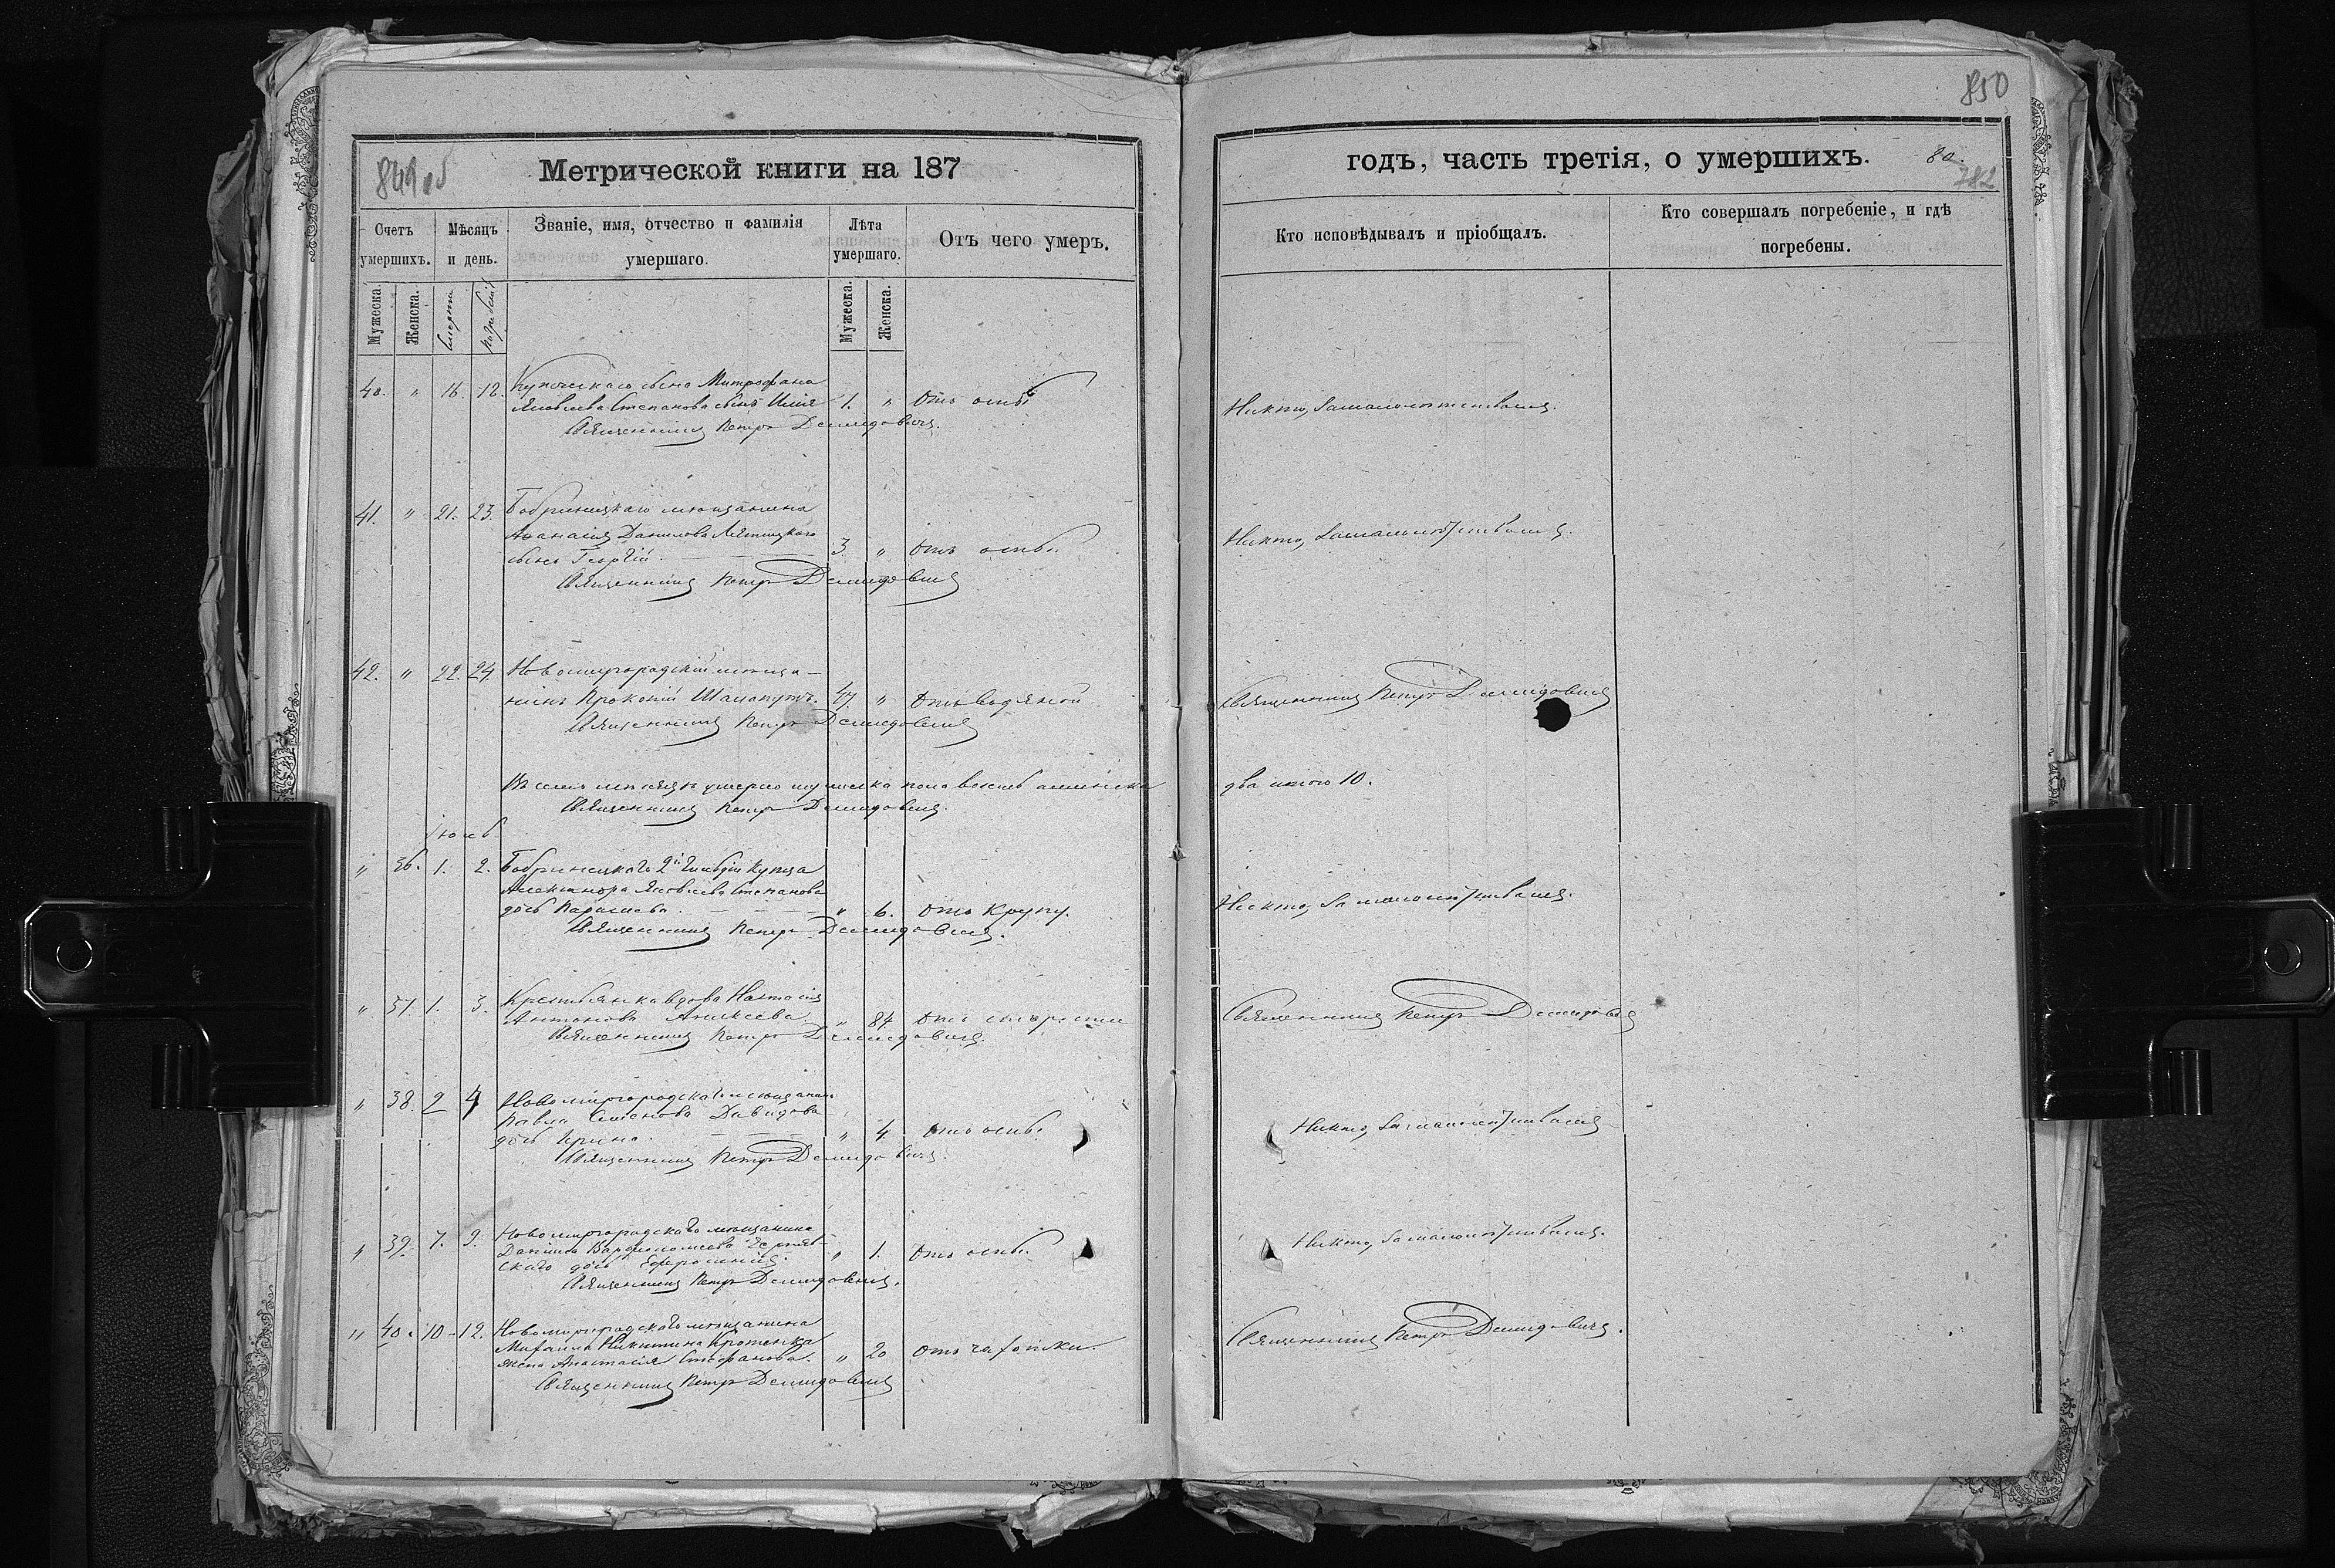 849 об
Метрической книги на 187
Счетъ умершихъ.
Мѣсяцъ и день.
Званіе, имя, отчество и фамилія умершаго.
Лѣта умершаго.
Отъ чего умеръ.
Мужеска.
Женска.
смерти
погребенія
Мужеска.
Женска.
40. " 16. 18. Купеческаго сына Митрофана
Яковлева Степанова сынъ Илія 1. " Отъ оспы
Священникъ Петръ Демидовичъ.
41. " 21. 23. Бобринецкаго мѣщанина
Аѳанасія Данилова
сынъ Георгій 3. " Отъ оспы.
Священникъ Петръ Демидовичъ
42. " 22. 24. Новомиргородскій мѣща-
нинъ Прокопій Шалапутъ. 47. " Отъ водяной
Священникъ Петръ Демидовичъ
В семъ мѣсяцѣ умерло мужеска пола восемь а женска
Священникъ Петръ Демидовичъ.
Іюль
" 36. 1. 2. Бобринецкаго 2й гильдіи купца
Александра Яковлева Степанова
дочь Параскева. " 6. Отъ крупу.
Священникъ Петръ Демидовичъ.
" 37. 1. 3. Крестьянка вдова Наталія
Антонова Алексеева. " 84 Отъ старости
Священникъ Петръ Демидовичъ.
" 38. 2 4 Новомиргородскаго мѣщанина
Павла Семенова Давидова
дочь Ирина. " 4. Отъ оспы.
Священникъ Петръ Демидовичъ.
" 39. 7. 9. Новомиргородскаго мѣщанина
Даніила Варфоломеева
скаго дочь Ефросинія. " 1. Отъ оспы.
Священникъ Петръ Демидовичъ.
" 40. 10 - 12. Новомиргородскаго мѣщанина
Михаила Никитина
жена Анастасія Стефанова. " 20 Отъ чахотки.
Священникъ Петръ Демидовичъ
850
годъ, часть третія, о умершихъ.
80.
782
Кто исповѣдывалъ и пріобщалъ.
Кто совершалъ погребеніе, и гдѣ погребены.
Никто, за малолѣтствомъ.
Никто, за малолѣтствомъ.
Священникъ Петръ Демидовичъ
два итого 10.
Никто, за малолѣтствомъ.
Священникъ Петръ Демидовичъ
Никто, за малолѣтствомъ
Никто, за малолѣтствомъ.
Священникъ Петръ Демидовичъ.